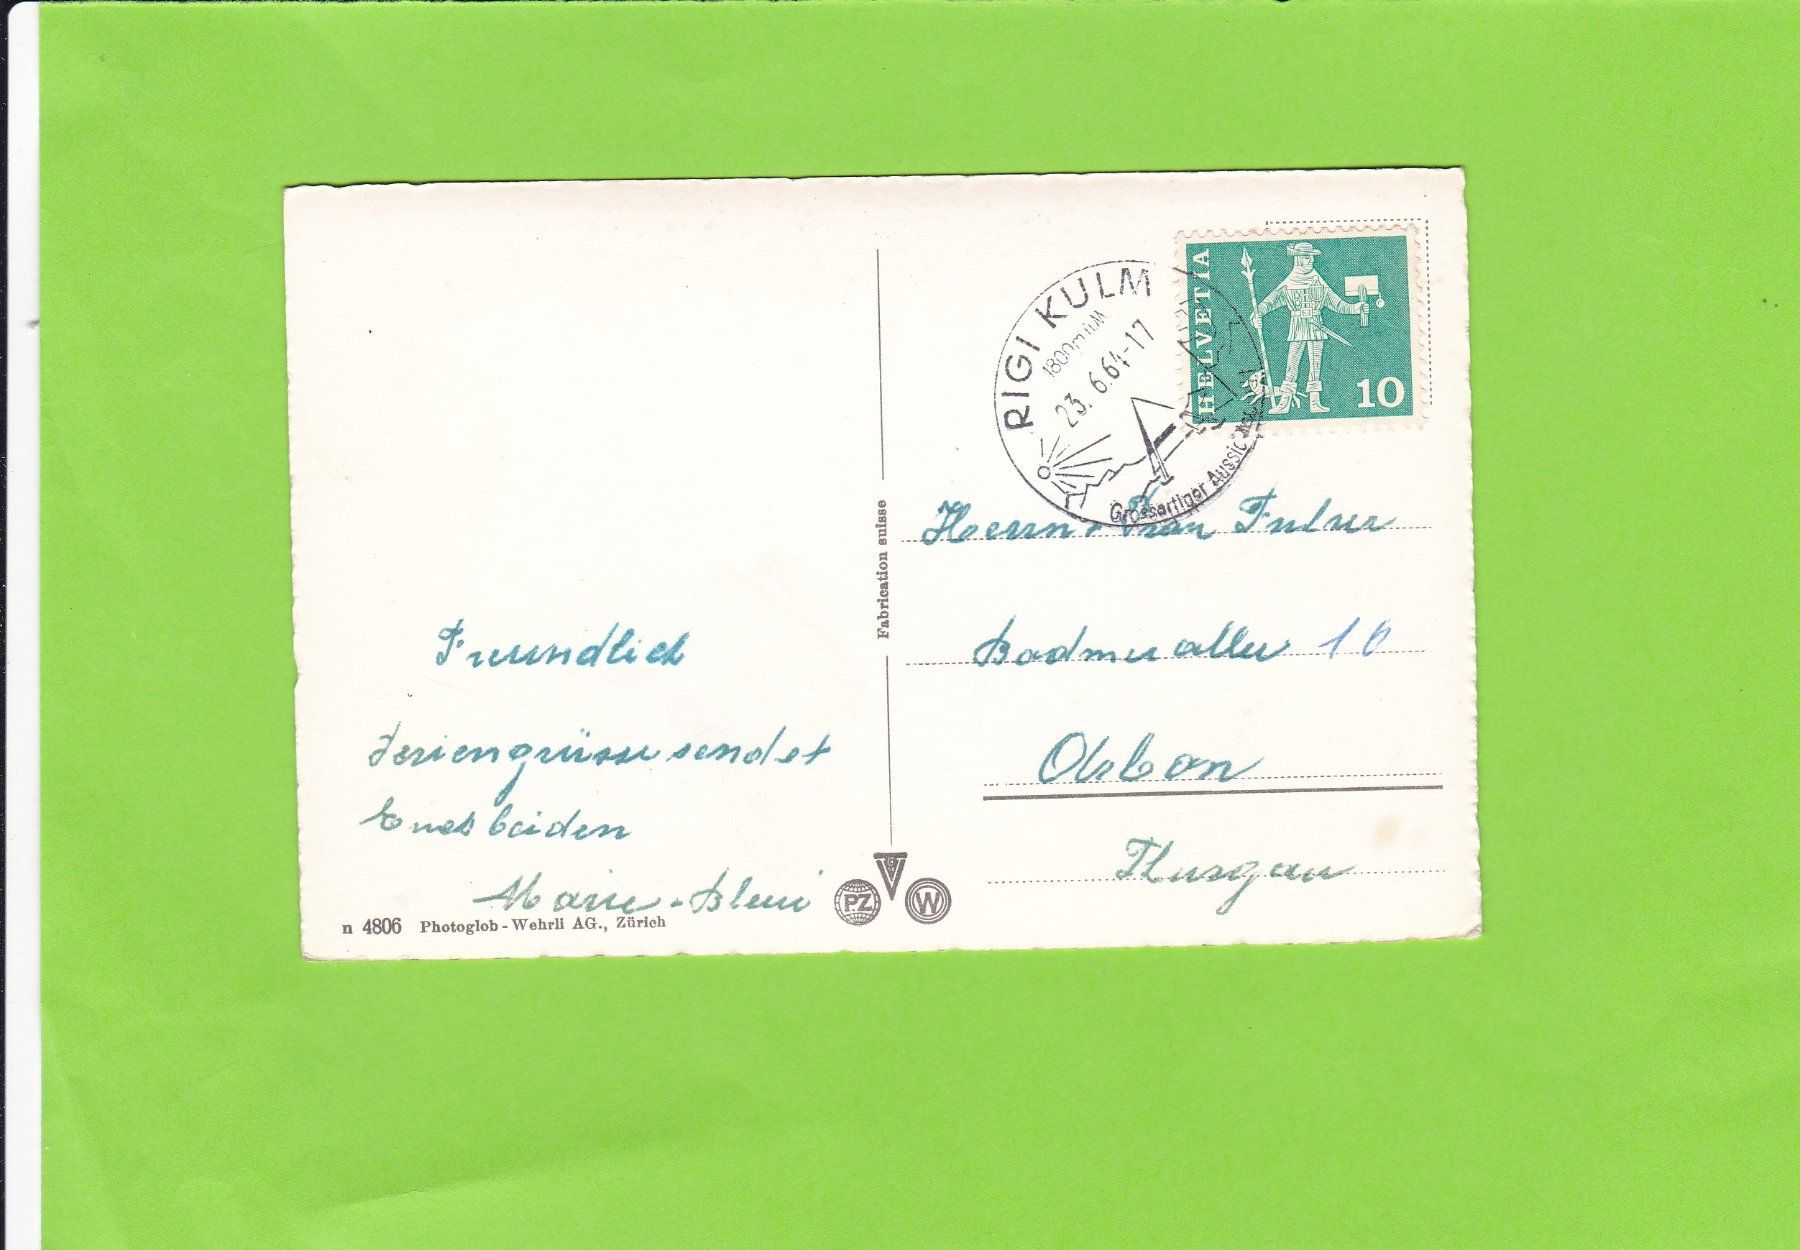 RIGI KULM
1800 m ü M
23. 6.64-17
Grossartiger Aussic
HELVETIA
10
Fabrication suisse
Herrn. Frau
10
Thurgau
Freundlich
Feriengrüsse sendet
Euch beiden
Marie
PZ
W
n 4806 Photoglob-Wehrli AG., Zürich